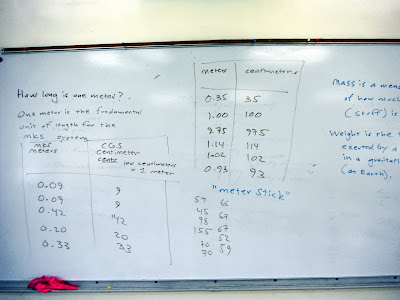 How long is one meter?
One meter is the fundamental
unit of length for the
mks system
mks
meters
CGS
centimeter
100 centimeters
= 1 meter
0.09 9
0.09 9
0.42 42
0.20 20
0.33 33
meters centimeters
0.35 35
1.00 100
9.75 975
1.14 114
1.02 102
0.93 93
"meter stick"
59 66
45
98 67
155 67
52
70
70 59
Mass is a mea
of how much
(stuff) is
Weight is the
exerted by a
in a gravitat
(on Earth).